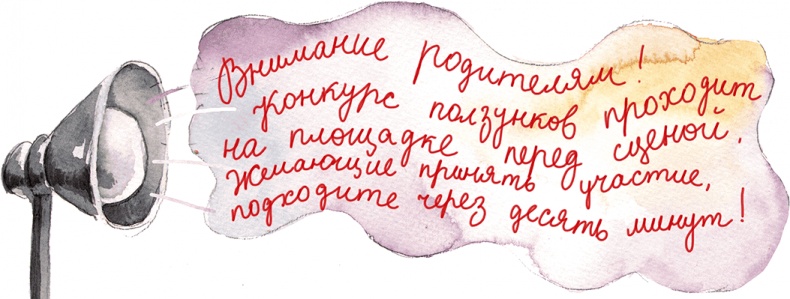 Внимание родителям!
Конкурс ползунков проходит
на площадке перед сценой.
Желающие принять участие,
подходите через десять минут!